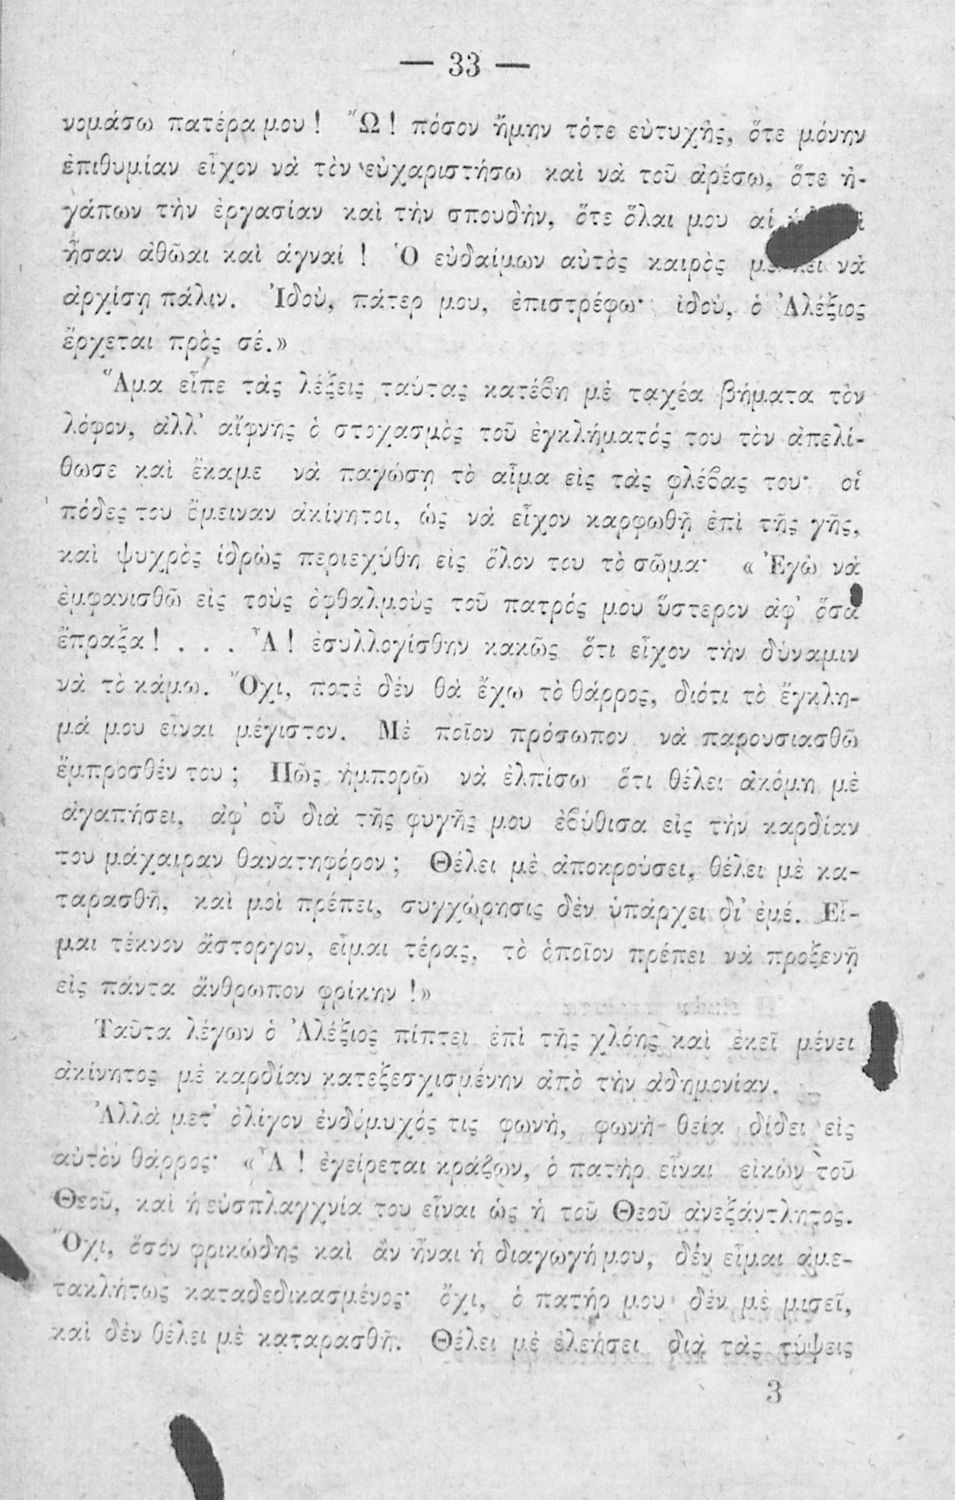 — 33 —
νομάσω πατέρα μου ! Ὢ ! πόσον ἤμην τότε εὐτυχὴς, ὅτε μόνην
ἐπιθυμίαν εἶχον νὰ τὸν εὐχαριστήσω καὶ νὰ τοῦ ἀρέσω, ὅτε ἠ-
γάπων τὴν ἐργασίαν καὶ τὴν σπουδὴν, ὅτε ὅλαι μου αἱ
ἦσαν ἀθῶαι καὶ ἁγναί ! Ὁ εὐδαίμων αὐτὸς καιρὸς νὰ
ἀρχίσῃ πάλιν. Ἰδοὺ, πάτερ μου, ἐπιστρέφω· ἰδοὺ, ὁ Ἀλέξιος
ἔρχεται πρὸς σέ.»
Ἅμα εἶπε τὰς λέξεις ταύτας κατέβη μὲ ταχέα βήματα τὸν
λόφον, ἀλλ’ αἴφνης ὁ στοχασμὸς τοῦ ἐγκλήματός του τὸν ἀπελί-
θωσε καὶ ἔκαμε νὰ παγώσῃ τὸ αἷμα εἰς τὰς φλέβας του· οἱ
πόδες του ἔμειναν ἀκίνητοι, ὡς νὰ εἶχον καρφωθῆ ἐπὶ τῆς γῆς,
καὶ ψυχρὸς ἱδρὼς περιεχύθη εἰς ὅλον του τὸ σῶμα· « Ἐγὼ νὰ
ἐμφανισθῶ εἰς τοὺς ὀφθαλμοὺς τοῦ πατρός μου ὕστερον ἀφ’ ὅσα
ἔπραξα ! . . . Ἆ ! ἐσυλλογίσθην κακῶς ὅτι εἶχον τὴν δύναμιν
νὰ τὸ κάμω. Ὄχι, ποτὲ δὲν θὰ ἔχω τὸ θάρρος, διότι τὸ ἔγκλη-
μά μου εἶναι μέγιστον. Μὲ ποῖον πρόσωπον νὰ παρουσιασθῶ
ἔμπροσθέν του ; Πῶς ἠμπορῶ νὰ ἐλπίσω ὅτι θέλει ἀκόμη μὲ
ἀγαπήσει, ἀφ’ οὗ διὰ τῆς φυγῆς μου ἐβύθισα εἰς τὴν καρδίαν
του μάχαιραν θανατηφόρον ; Θέλει μὲ ἀποκρούσει, θέλει μὲ κα-
ταρασθῆ, καὶ μοὶ πρέπει, συγχώρησις δὲν ὑπάρχει δι’ ἐμέ. Εἶ-
μαι τέκνον ἄστοργον, εἶμαι τέρας, τὸ ὁποῖον πρέπει νὰ προξενῇ
εἰς πάντα ἄνθρωπον φρίκην !»
Ταῦτα λέγων ὁ Ἀλέξιος πίπτει ἐπὶ τῆς χλόης καὶ ἐκεῖ μένει
ἀκίνητος μὲ καρδίαν κατεξεσχισμένην ἀπὸ τὴν ἀδημονίαν.
Ἀλλὰ μετ’ ὀλίγον ἐνδόμυχός τις φωνὴ, φωνὴ θεία δίδει εἰς
αὐτὸν θάρρος· «Ἆ ! ἐγείρεται κράζων, ὁ πατὴρ εἶναι εἰκὼν τοῦ
Θεοῦ, καὶ ἡ εὐσπλαγχνία του εἶναι ὡς ἡ τοῦ Θεοῦ ἀνεξάντλητος.
Ὄχι, ὅσον φρικώδης καὶ ἂν ἦναι ἡ διαγωγή μου, δὲν εἶμαι ἀμε-
τακλήτως καταδεδικασμένος· ὄχι, ὁ πατήρ μου δὲν μὲ μισεῖ,
καὶ δὲν θέλει μὲ καταρασθῆ. Θέλει μὲ ἐλεήσει διὰ τὰς τύψεις
3